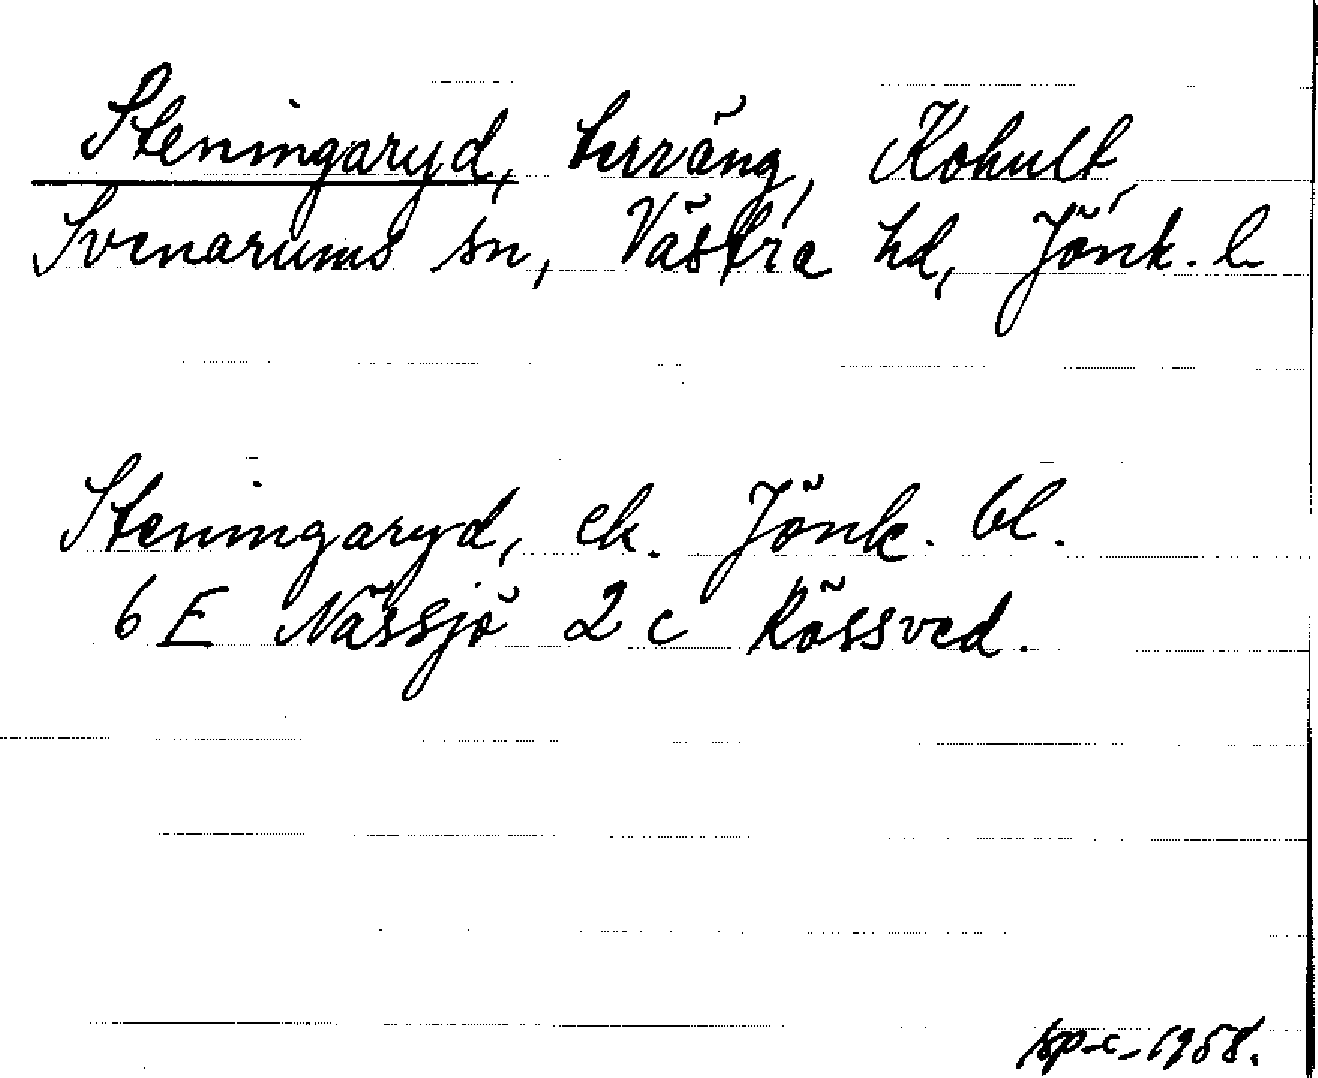 Steningaryd, terräng, Kohult,
Svenarums sn, Västra hd, Jönk. l
Steningaryd, ek. Jönk. bl.
6 E Nässjö 2 c Rössved.
1958.